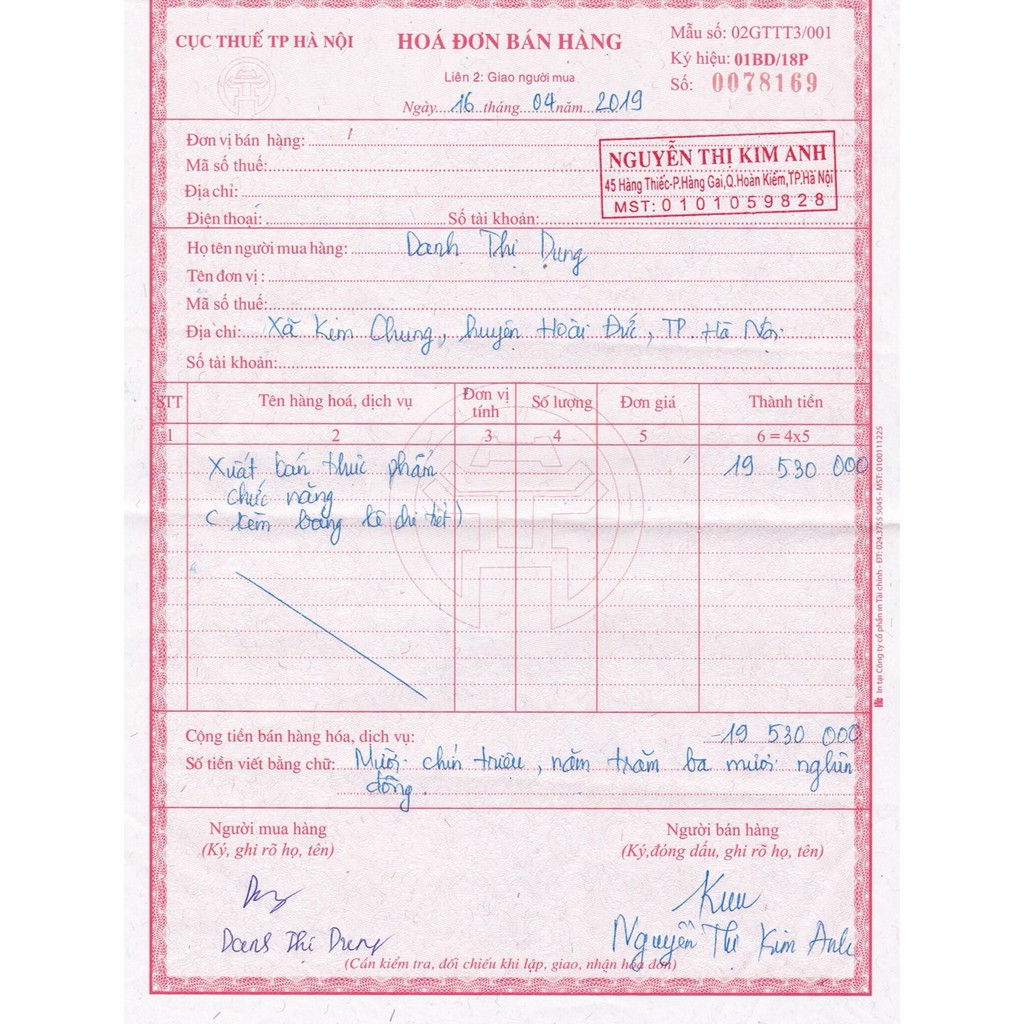 CỤC THUẾ TP HÀ NỘI
HOÁ ĐƠN BÁN HÀNG
Liên 2: Giao người mua
Ngày 16 tháng 04 năm 2019
Mẫu số: 02GTTT3/001
Ký hiệu: 01BD/18P
Số: 0078169
Đơn vị bán hàng:
Mã số thuế:
Địa chỉ:
Điện thoại: Số tài khoản:
NGUYỄN THỊ KIM ANH
45 Hàng Thiếc-P.Hàng Gai,Q.Hoàn Kiếm,TP.Hà Nội
MST: 0101059828
Họ tên người mua hàng: Danh Thị Dung
Tên đơn vị :
Mã số thuế:
Địa chỉ: Xã Kim Chung, huyện Hoài Đức, TP. Hà Nội
Số tài khoản:
STT Tên hàng hoá, dịch vụ Đơn vị tính Số lượng Đơn giá Thành tiền
1 2 3 4 5 6 = 4x5
Xuất bán thực phẩm 19 530 000
chức năng
( kèm bảng kê chi tiết )
Cộng tiền bán hàng hóa, dịch vụ: 19 530 000
Số tiền viết bằng chữ: Mười chín triệu, năm trăm ba mươi nghìn
đồng.
Người mua hàng Người bán hàng
(Ký, ghi rõ họ, tên) (Ký,đóng dấu, ghi rõ họ, tên)
Danh Thị Dung Nguyễn Thị Kim Anh
(Cần kiểm tra, đối chiếu khi lập, giao, nhận hoá đơn)
In tại Công ty cổ phần in Tài chính - ĐT: 024.3755 5045 - MST: 0100111225